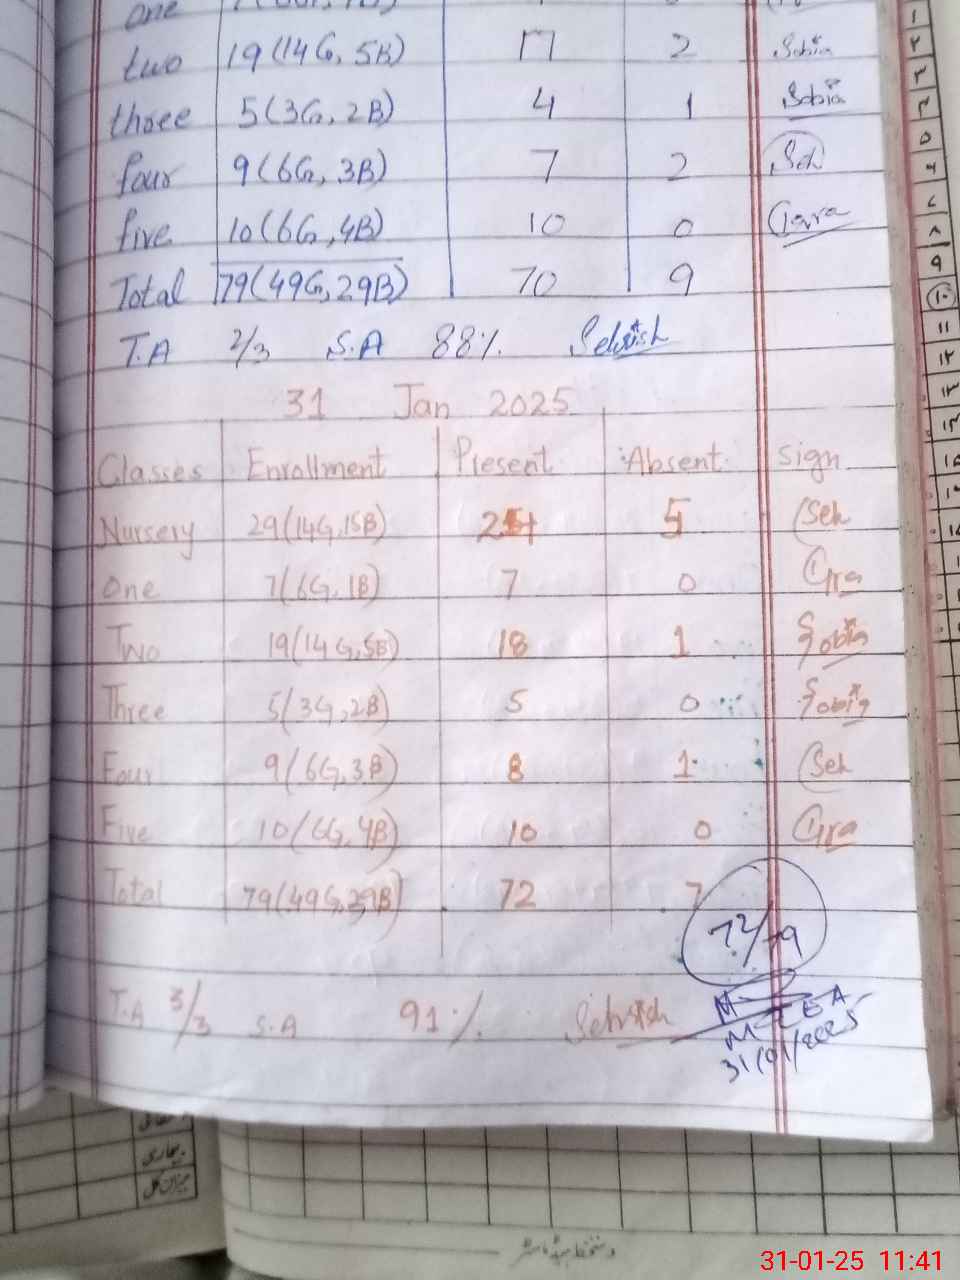 one
two 19(14G, 5B) 17 2 Sobia
three 5(3G, 2B) 4 1 Sobia
four 9(6G, 3B) 7 2 Seh
five 10(6G, 4B) 10 0
Total 79(49G, 29B) 70 9
T.A 2/3 S.A 88% Sehrish
31 Jan 2025
Classes Enrollment Present Absent Sign
Nursery 29(14G, 15B) 24 5 Seh
One 7(6G, 1B) 7 0
Two 19(14G, 5B) 18 1 Sobia
Three 5(3G, 2B) 5 0 Sobia
Four 9(6G, 3B) 8 1 Seh
Five 10(6G, 4B) 10 0
Total 79(49G, 29B) 72 7
72/79
T.A 3/3 S.A 91% Sehrish
MEA
31/01/2025
بیماری
میزان کل
دستخط ہیڈ ماسٹر
31-01-25 11:41